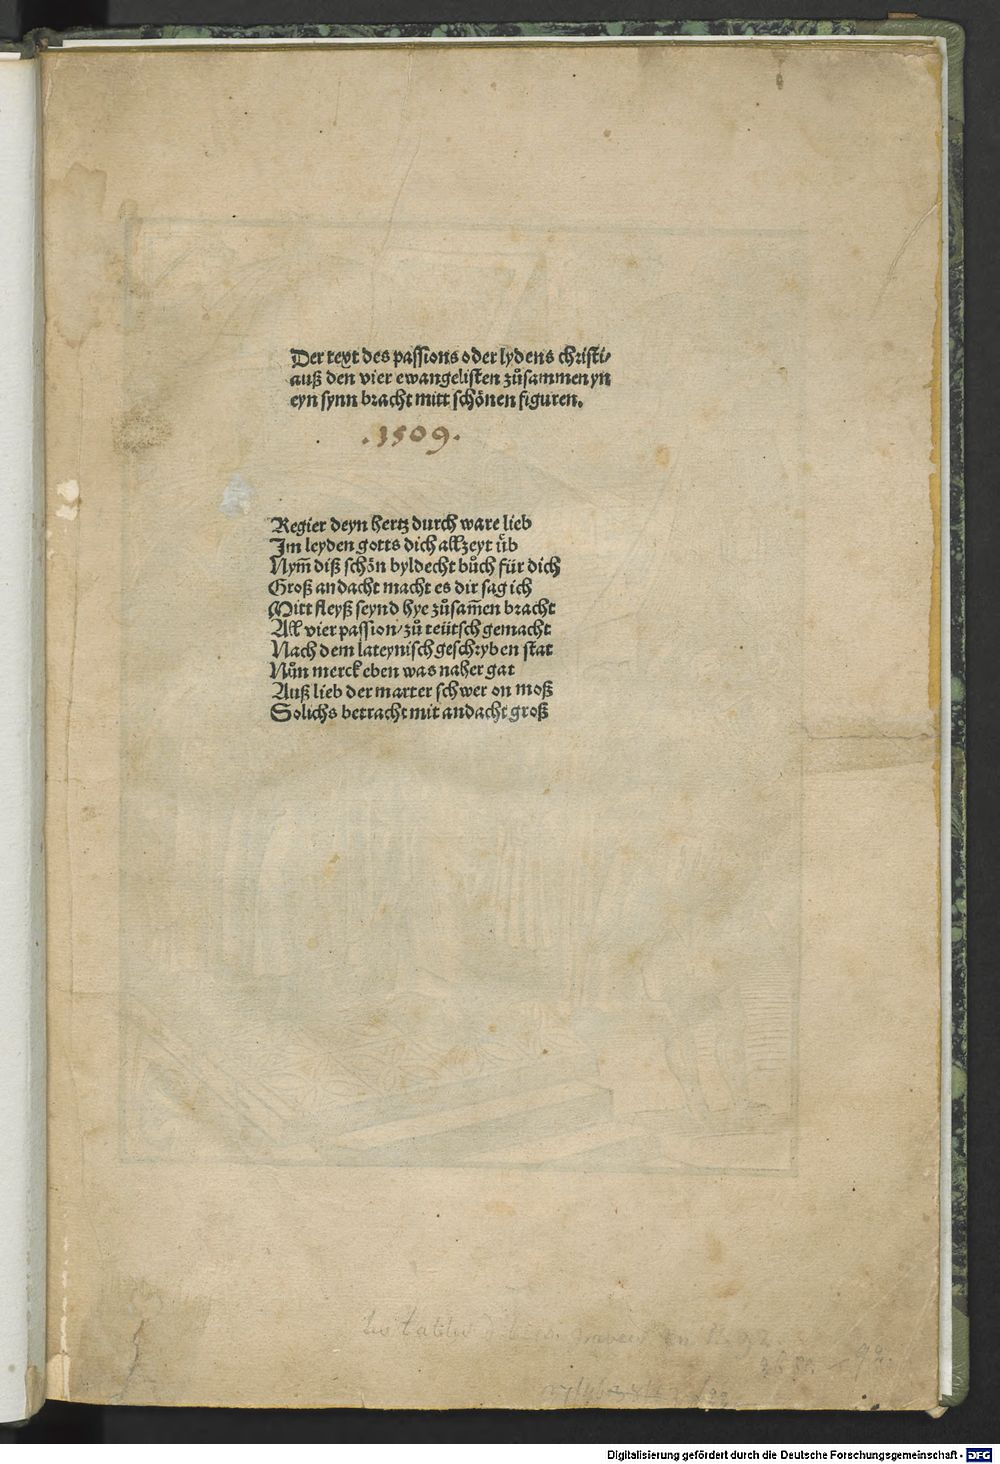 Der text des passions oder lydens christi/
auß den vier ewangelisten zůsammen yn
eyn synn bracht mitt schönen figuren.
.1509.
Regier deyn hertz durch ware lieb
Im leyden gotts dich allzeyt ůb
Nym̄ diß schön byldecht bůch für dich
Groß andacht macht es dir sag ich
Mitt fleyß seynd hye zůsam̄en bracht
All vier passion/ zů teütsch gemacht
Nach dem lateynisch geschryben stat
Nůn merck eben was naher gat
Auß lieb der marter schwer on moß
Solichs betracht mit andacht groß
Digitalisierung gefördert durch die Deutsche Forschungsgemeinschaft - DFG